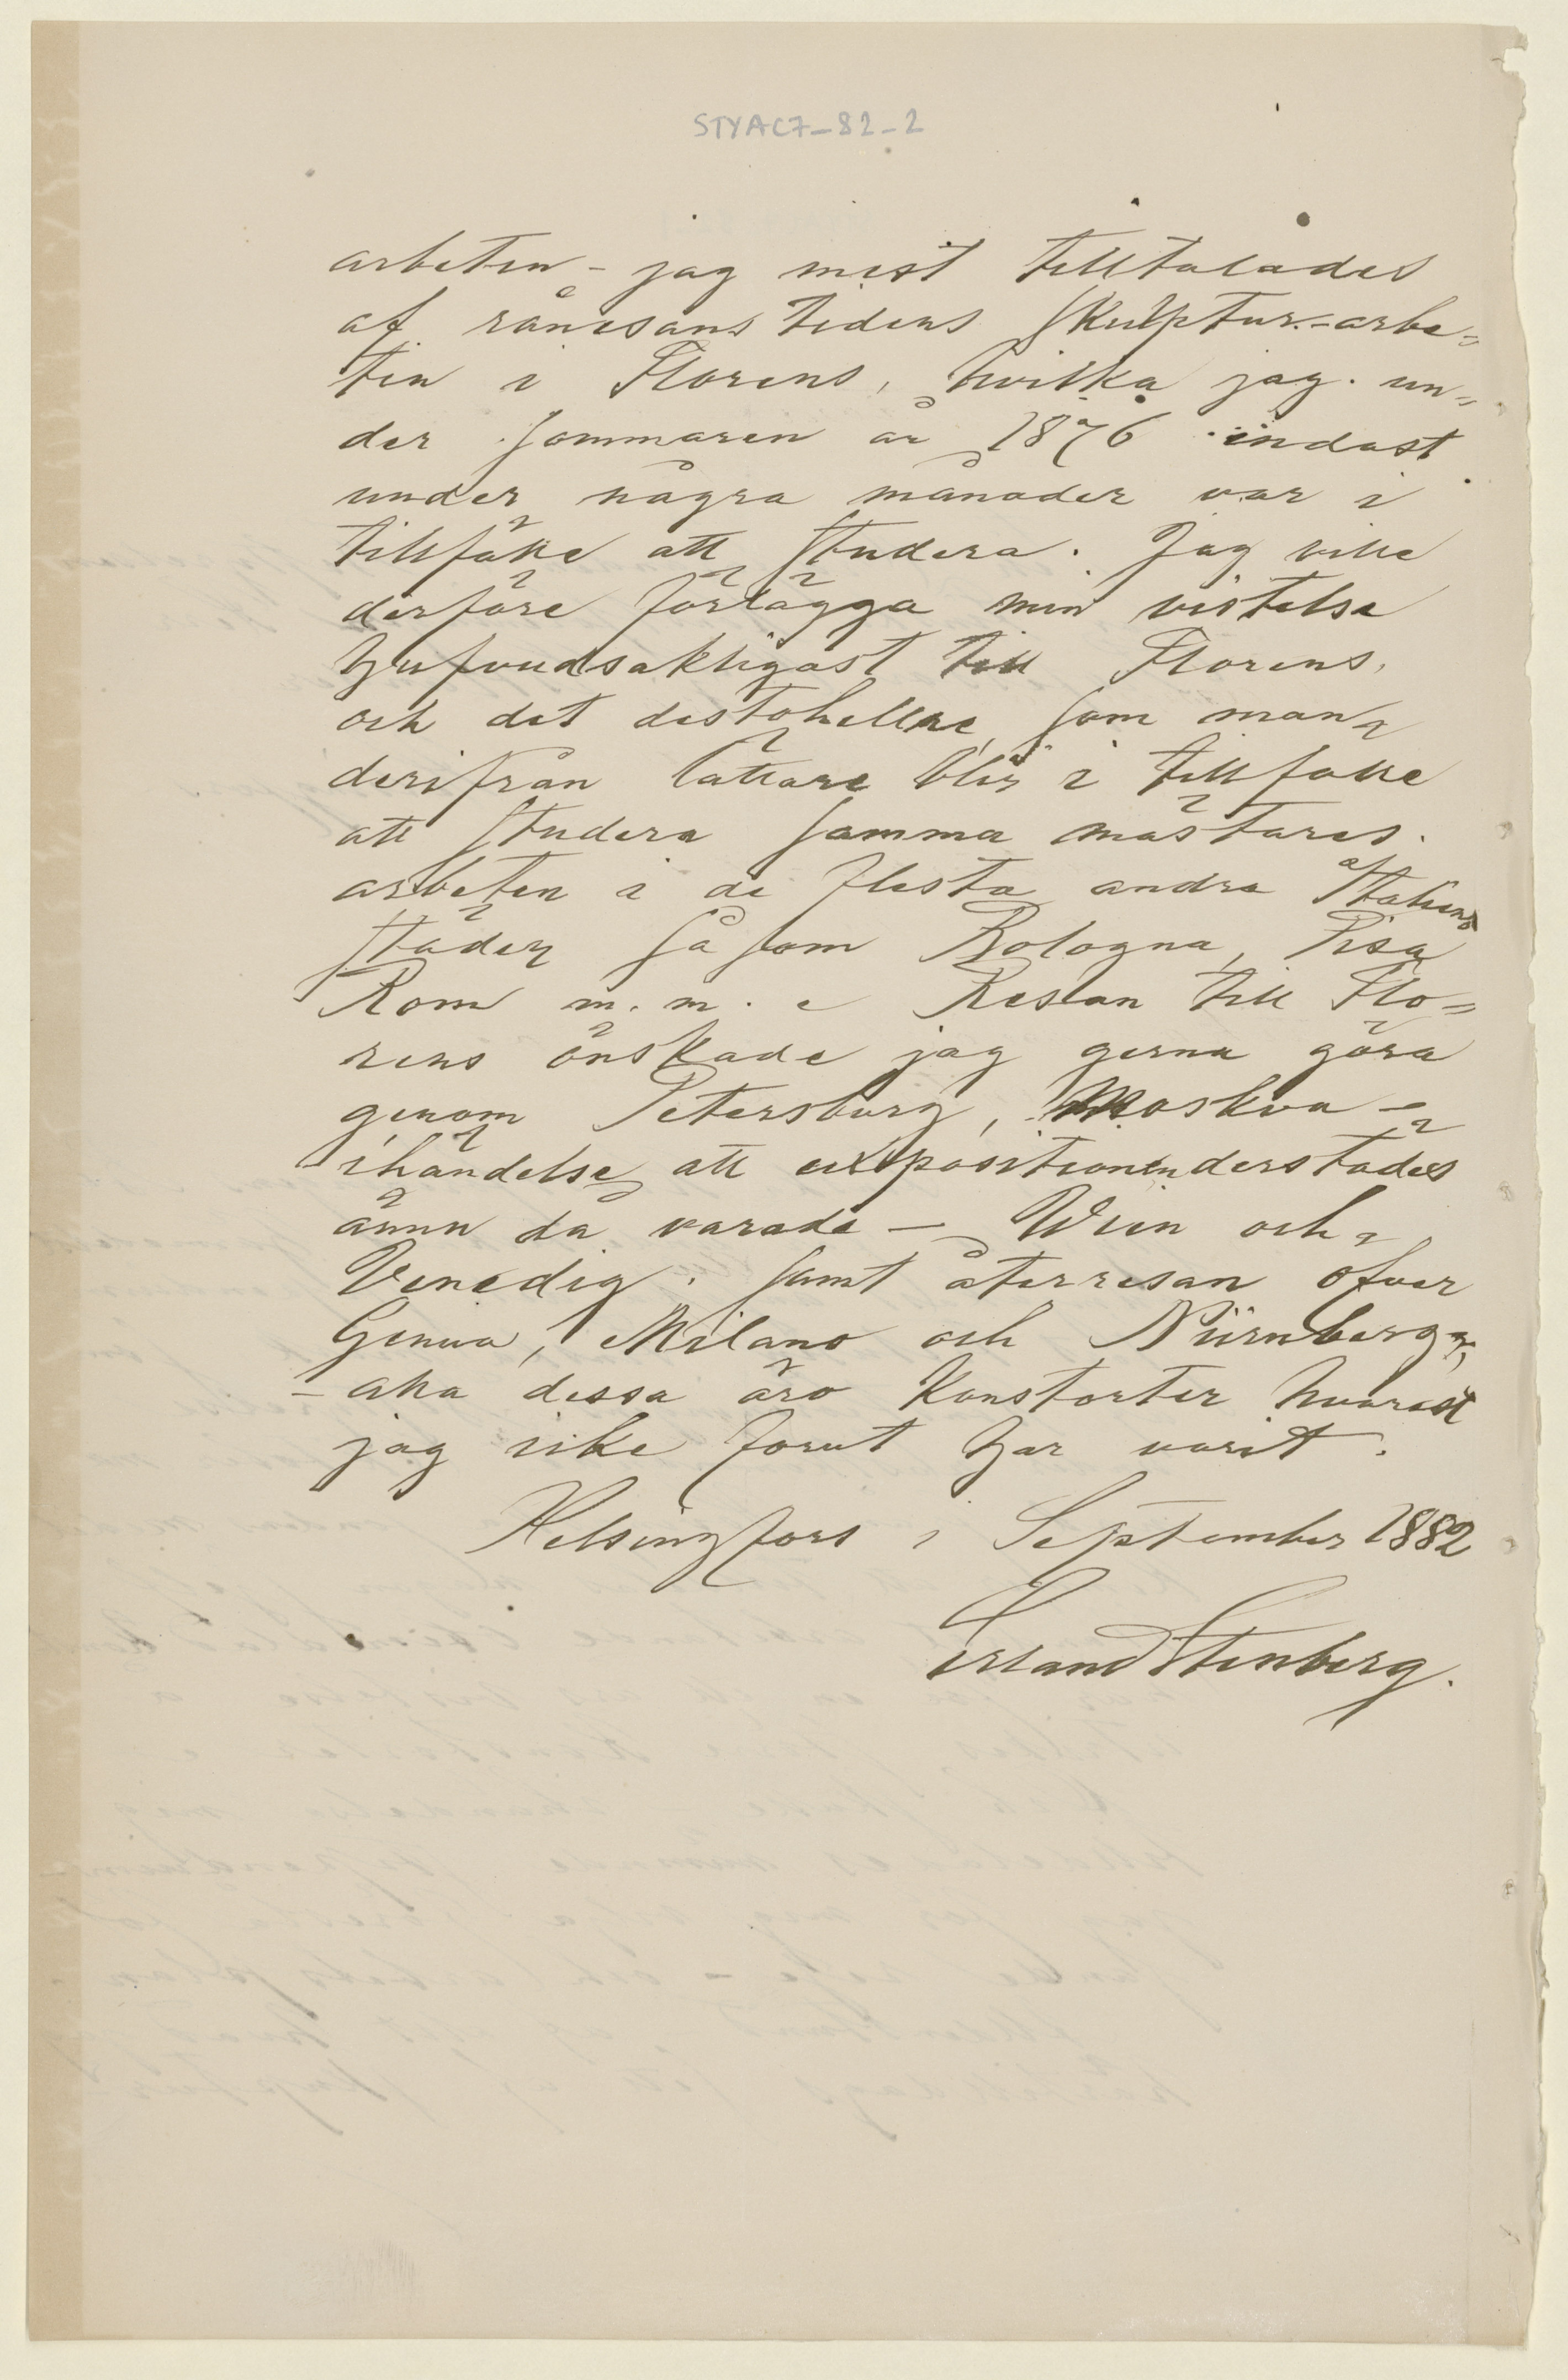 STYAC7_82_2
arbeten - jag mest tilltalades
af rånesans tidens skulptur-arbe=
ten i Florens, hvilka jag un=
der sommaren år 1876 endast
under några månader var i
tillfälle att studera. Jag ville
derföre förlägga min vistelse
hufvudsakligast till Florens,
och det destohellre, som man
derifrån lättare blir i tillfälle
att studera samma mästares
arbeten i de flesta andra af Italiens
städer så som Bologna, Pisa
Rom m. m. Resan till Flo=
rens önskade jag gerna göra
genom Petersburg, Moskva -
ihändelse att expositionen derstädes
ännu då varade — Wien och
Venedig, samt återresan öfver
Genua, Milano och Nürnberg,
- alla dessa äro konstorter hvarest
jag icke förut har varit.
Helsingfors i September 1882
Erland Stenberg.